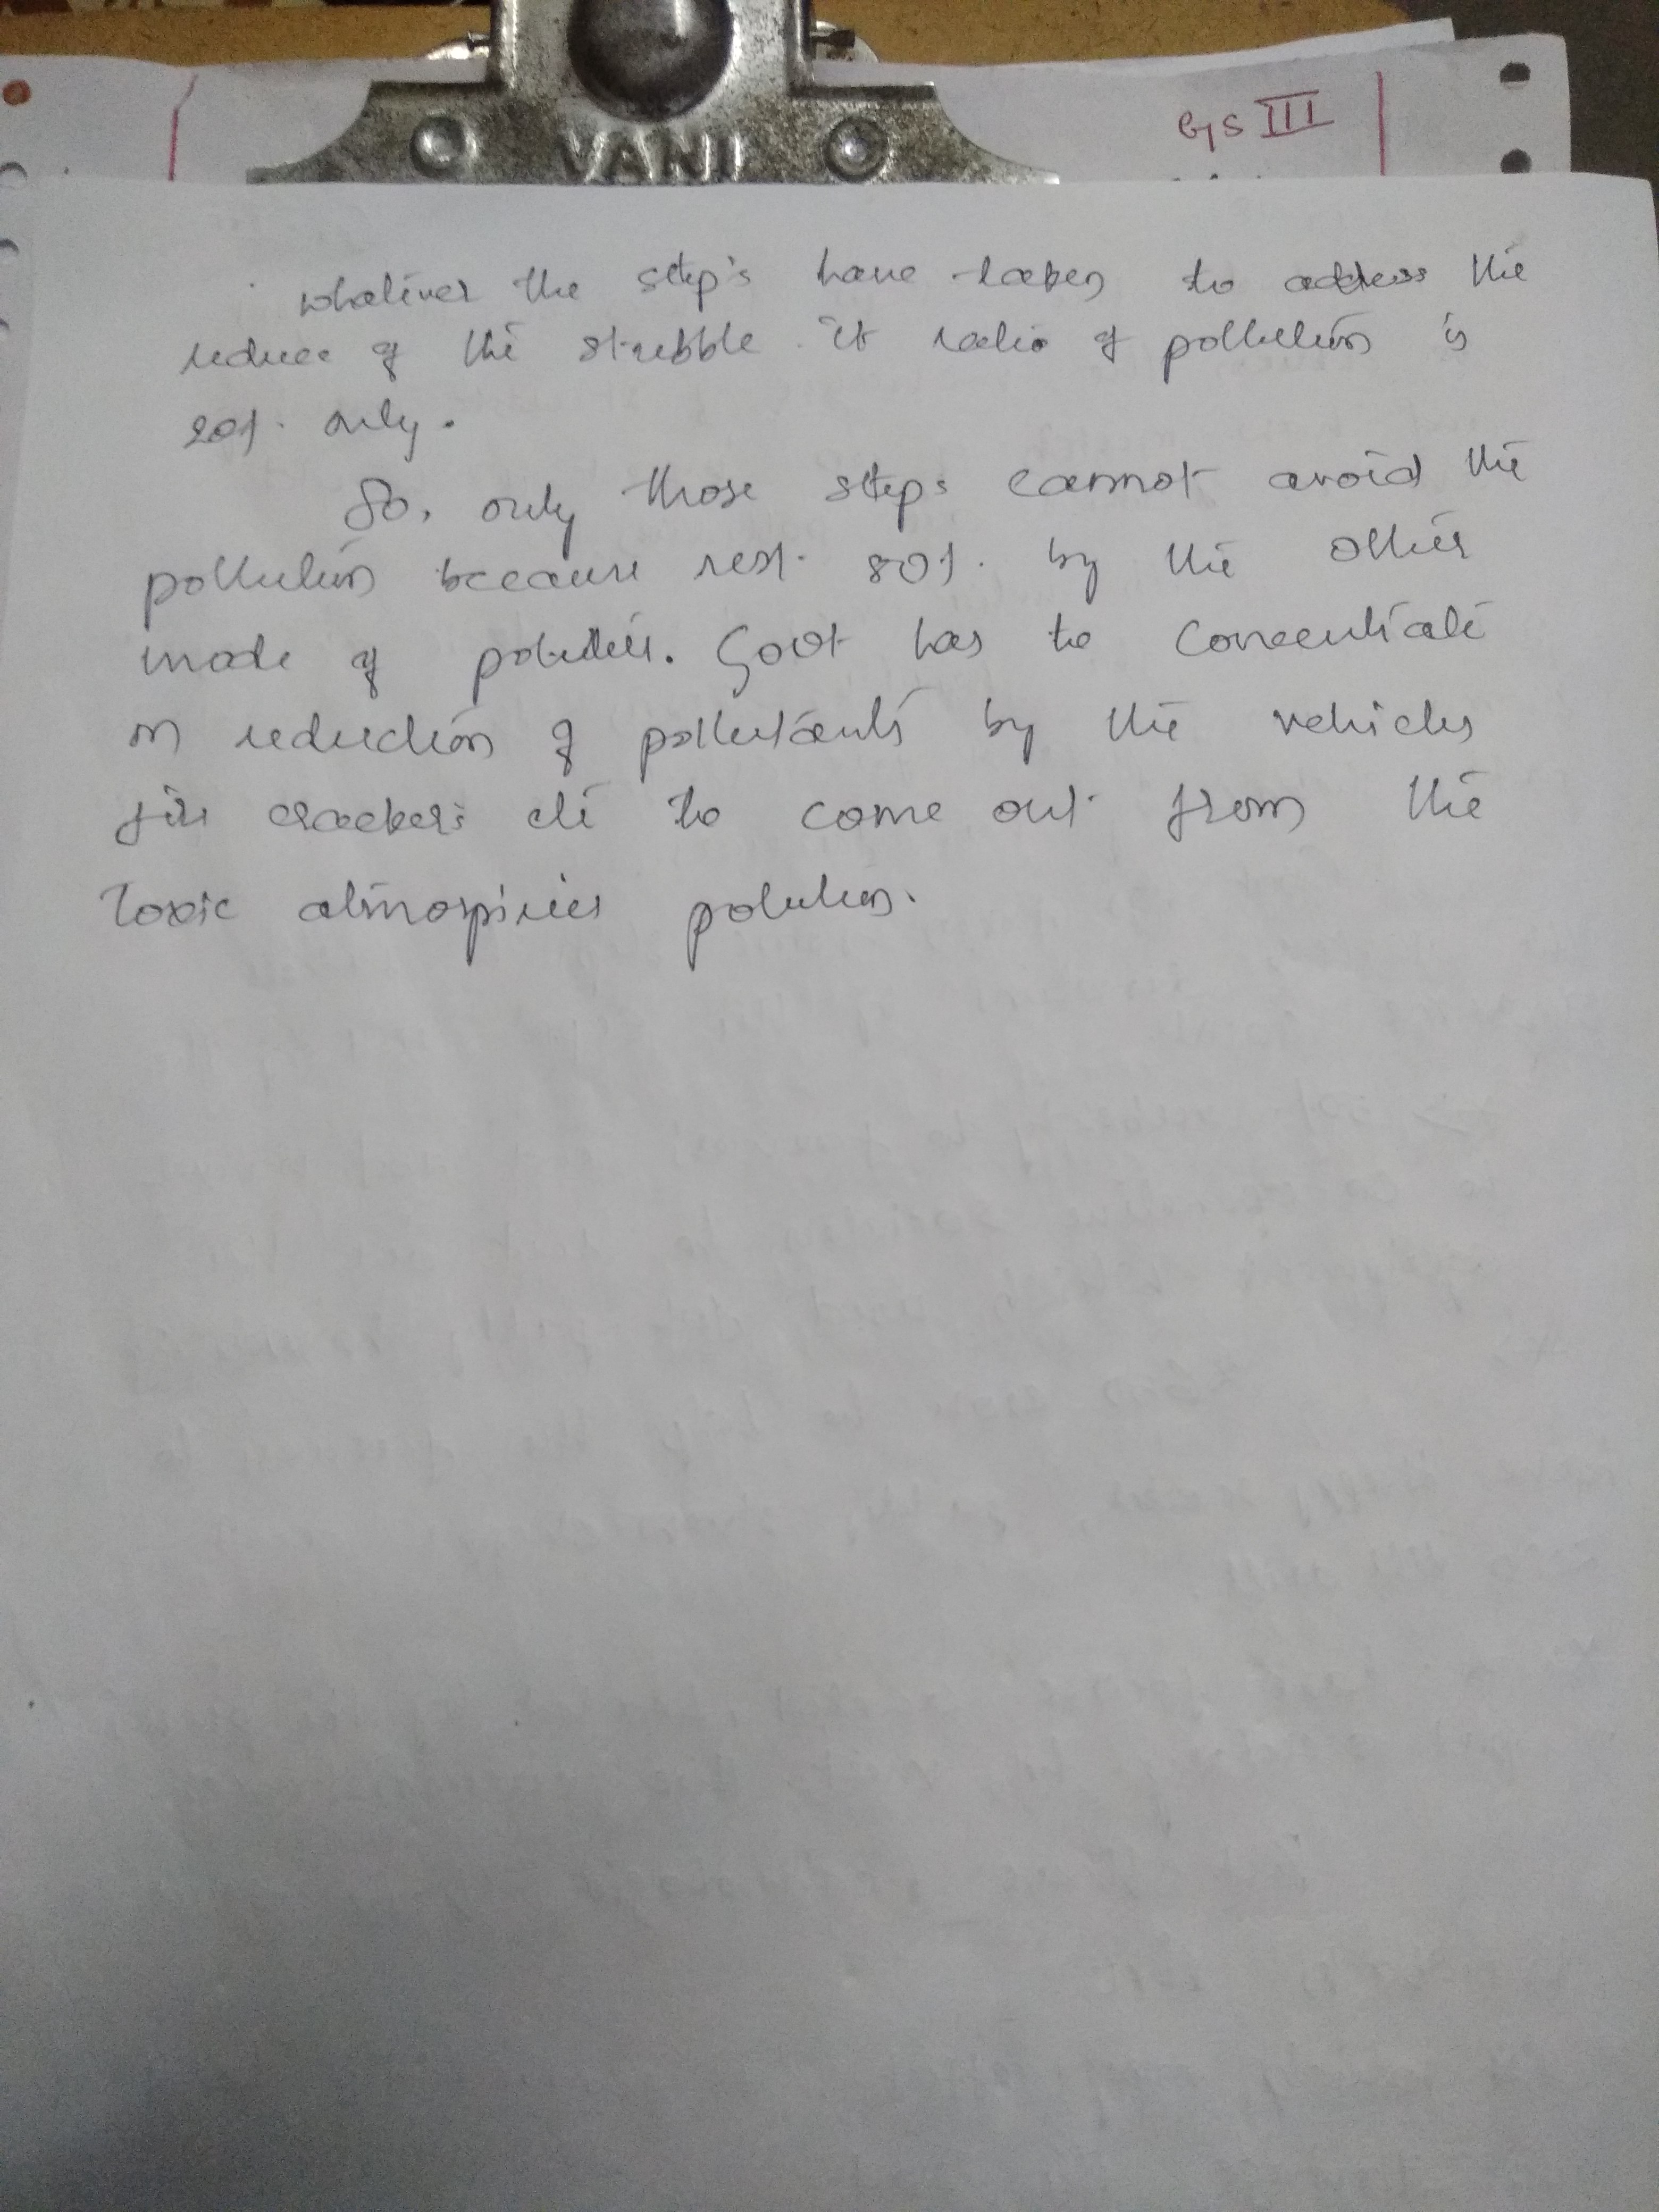 VANI
GS III
whatever the step's have taken to address the
reduce of the stubble it ratio of pollution is
20%. only.
So, only those steps cannot avoid the
pollution because rest. 80%. by the other
mode of Govt has to concentrate
on reduction of pollutants by the vehicles
fire crackers etc to come out from the
toxic polution.